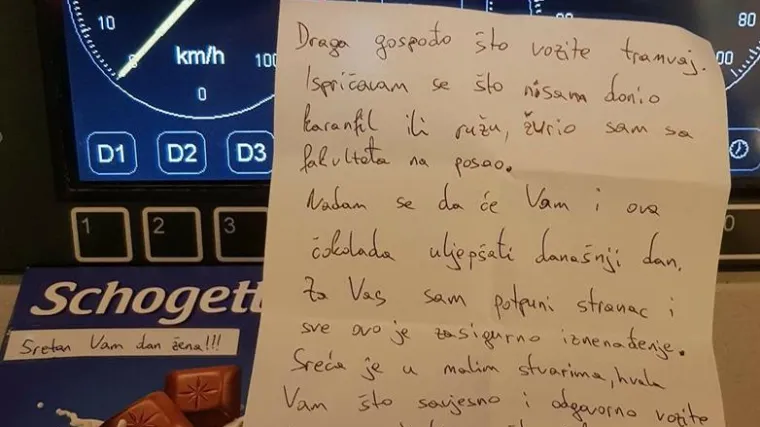 10
km/h
100
0
80
00
D1
D2
D3
1
2
3
0
Schogett
Sretan Vam dan žena!!!
Draga gospođo što vozite tramvaj.
Ispričavam se što nisam donio
karanfil ili ružu, žurio sam sa
fakulteta na posao.
Nadam se da će Vam i ova
čokolada uljepšati današnji dan.
Za Vas sam potpuni stranac i
sve ovo je zasigurno iznenađenje.
Sreća je u malim stvarima, hvala
Vam što savjesno i odgovorno vozite